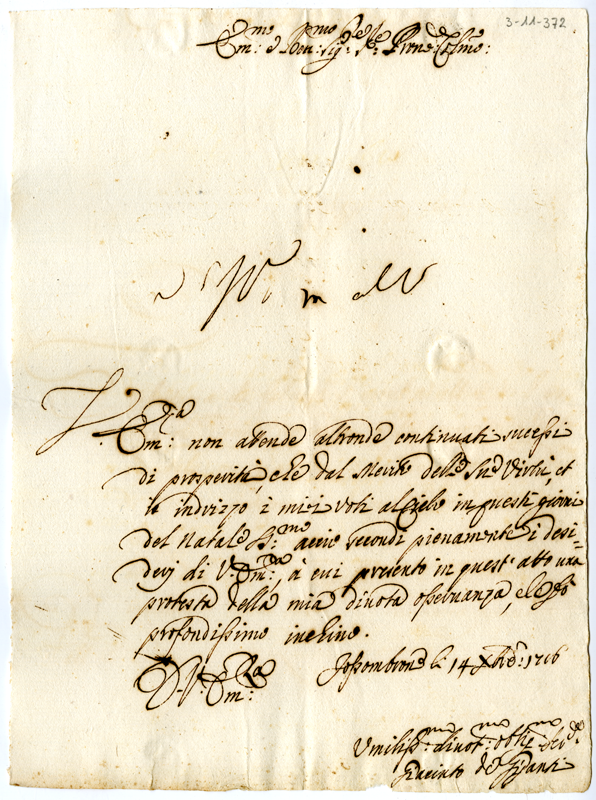 3-11-372
Em:mo e Rev:mo Sig:re Pron Col:mo
V. Em:za non attende altronde continuati sucessi
di prosperità, che dal Merito delle Sue Virtù, et
io indrizzo i miei voti al Cielo in questi giorni
del Natale S:mo acciò secondi pienamente i desi=
derj di V. Em:za, à cui presento in quest'atto una
protesta della mia divota osservanza, e le fò
profondissimo inchino.
D. V. Em:za
Fossombrone li 14 Xbre: 1716
Umiliss:mo divot:mo oblig:mo
Giacinto de